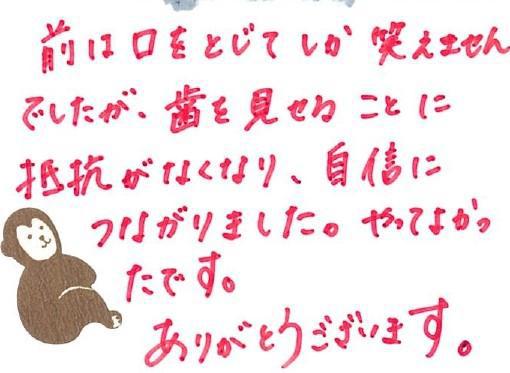 前は口をとじてしか笑えません
でしたが、歯を見せることに
抵抗がなくなり、自信に
つながりました。やってよかっ
たです。
ありがとうございます。